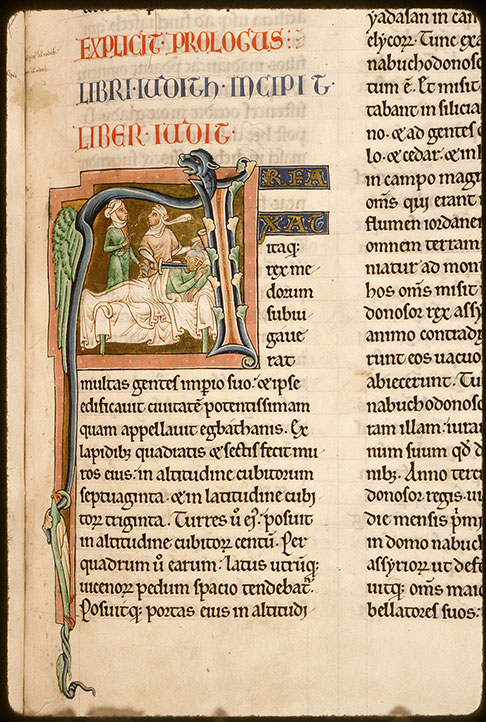 EXPLICIT· PROLOGUS:
LIBRI· IUDITH· INCIPIT·
LIBER· IUDIT·
A RFA
XAT
itaq;
rex me
dorum
subiu
gaue
rat
multas gentes imperio suo: & ipse
edificauit ciuitatē potentissimam
quam appellauit egbathanis. Ex
lapidib; quadratis & sectis fecit mu
ros eius: in altitudine cubitorum
septuaginta & in latitudine cubi
torꝝ triginta. Turres ū ei᷒ posuit
in altitudine cubitorꝝ centū. Per
quadrum ū earum: latus utrūq;
uicenorꝝ pedum spacio tendebat᷒.
Posuitq; portas eius in altitudi
yadasan in cam
elycorꝝ. Tunc
nabuchodonoso
tum ē. Et misit
tabant in silicia
no. & ad gentes
lo. & cedar. & in
in campo mag
om̄s qui erant
flumen iordanen
omnem terram
niatur ad mon
hos om̄s misit
donosor rex assy
animo contradi
runt eos uacuo
abiecerunt. Tu
nabuchodonoso
ram illam: iura
num suum qd̄ d
nib;. Anno terti
donosor regis. ui
die mensis p̄mi
in domo nabuch
assyriorꝝ ut def
uitq; om̄s maio
bellatores suos: